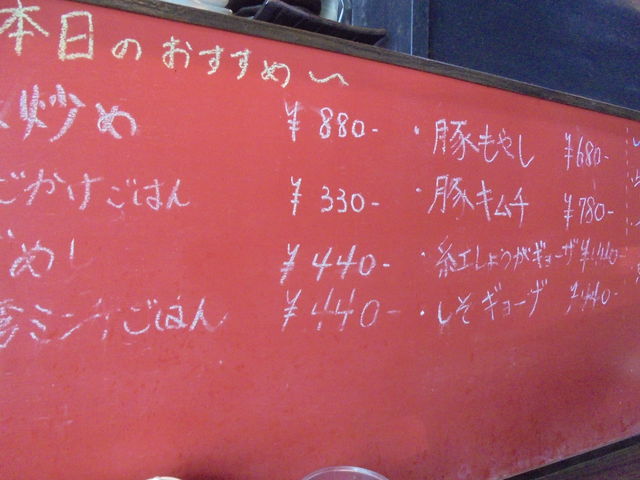 本日のおすすめ〜
炒め ¥880-
ごかけごはん ¥330-
めし ¥440-
ミンチごはん ¥440-
・豚もやし ¥680-
・豚キムチ ¥780-
・紅しょうがギョーザ ¥440-
・しそギョーザ ¥440-